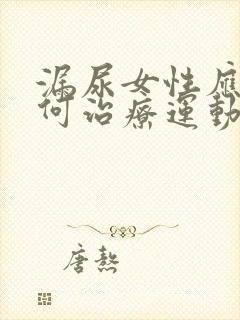 漏尿女性應
何治療運動
唐熬